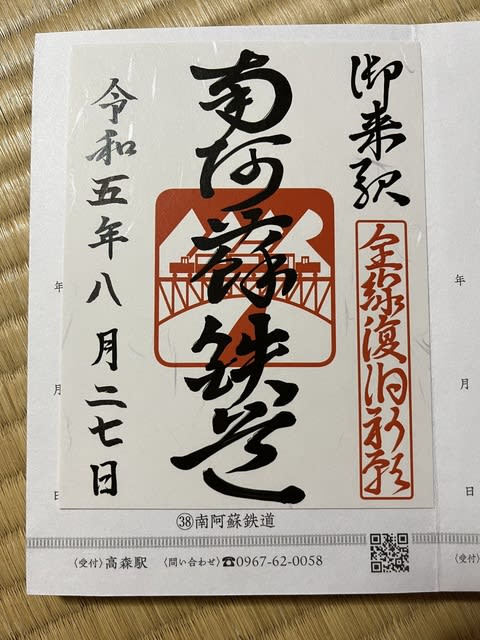 御来駅
全線復旧祈願
南阿蘇鉄道
令和五年八月二七日
年
月
日
年
月
日
㊳南阿蘇鉄道
〈受付〉高森駅 〈問い合わせ〉☎0967-62-0058
〈受付〉